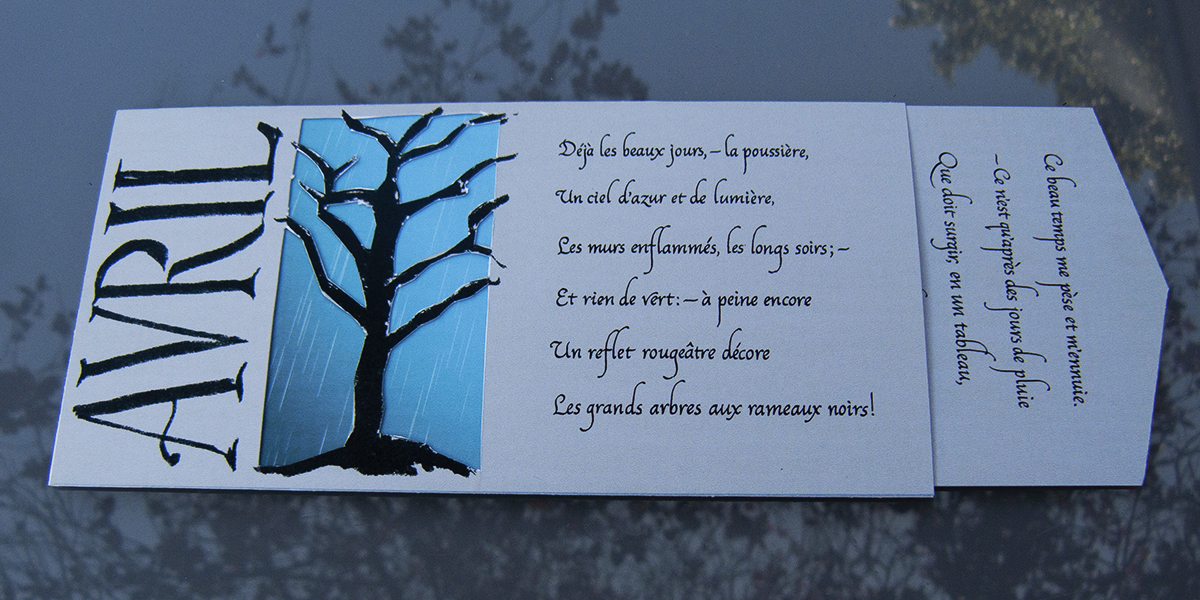 AVRIL
Déjà les beaux jours, – la poussière,
Un ciel d'azur et de lumière,
Les murs enflammés, les longs soirs; –
Et rien de vert: – à peine encore
Un reflet rougeâtre décore
Les grands arbres aux rameaux noirs!
Ce beau temps me pèse et m'ennuie.
– Ce n'est qu'après des jours de pluie
Que doit surgir, en un tableau,